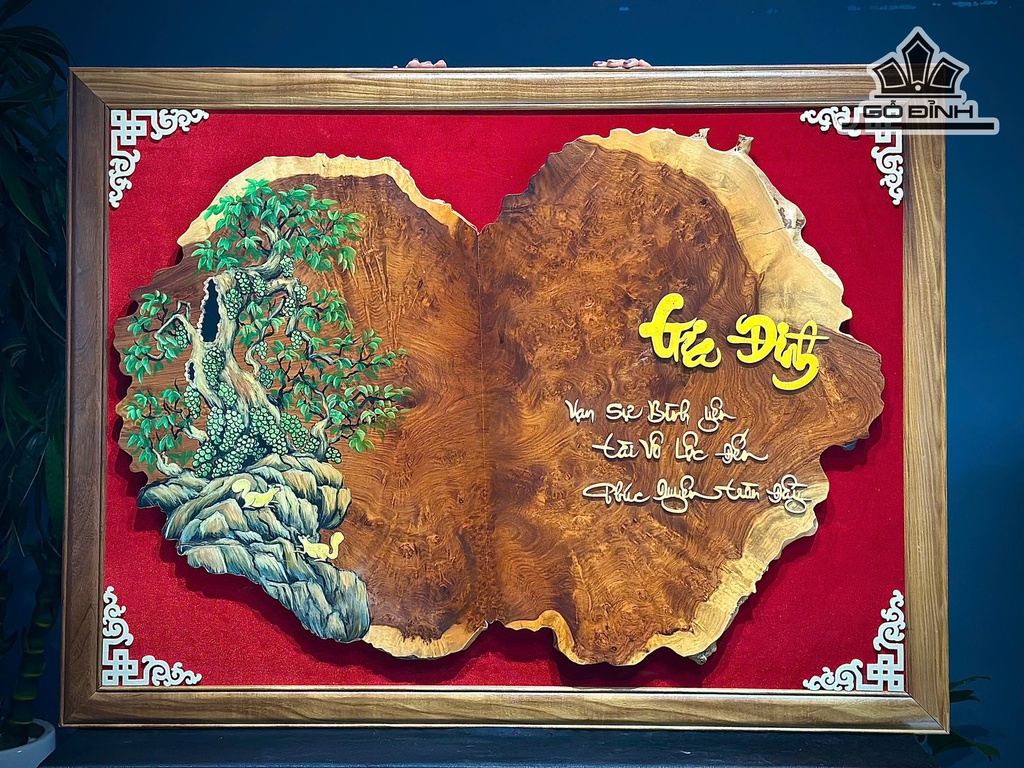 GỖ ĐỈNH
Gia Đình
Vạn Sự Bình Yên
Tài Vô Lộc Đến
Phúc Quyền Tràn Đầy